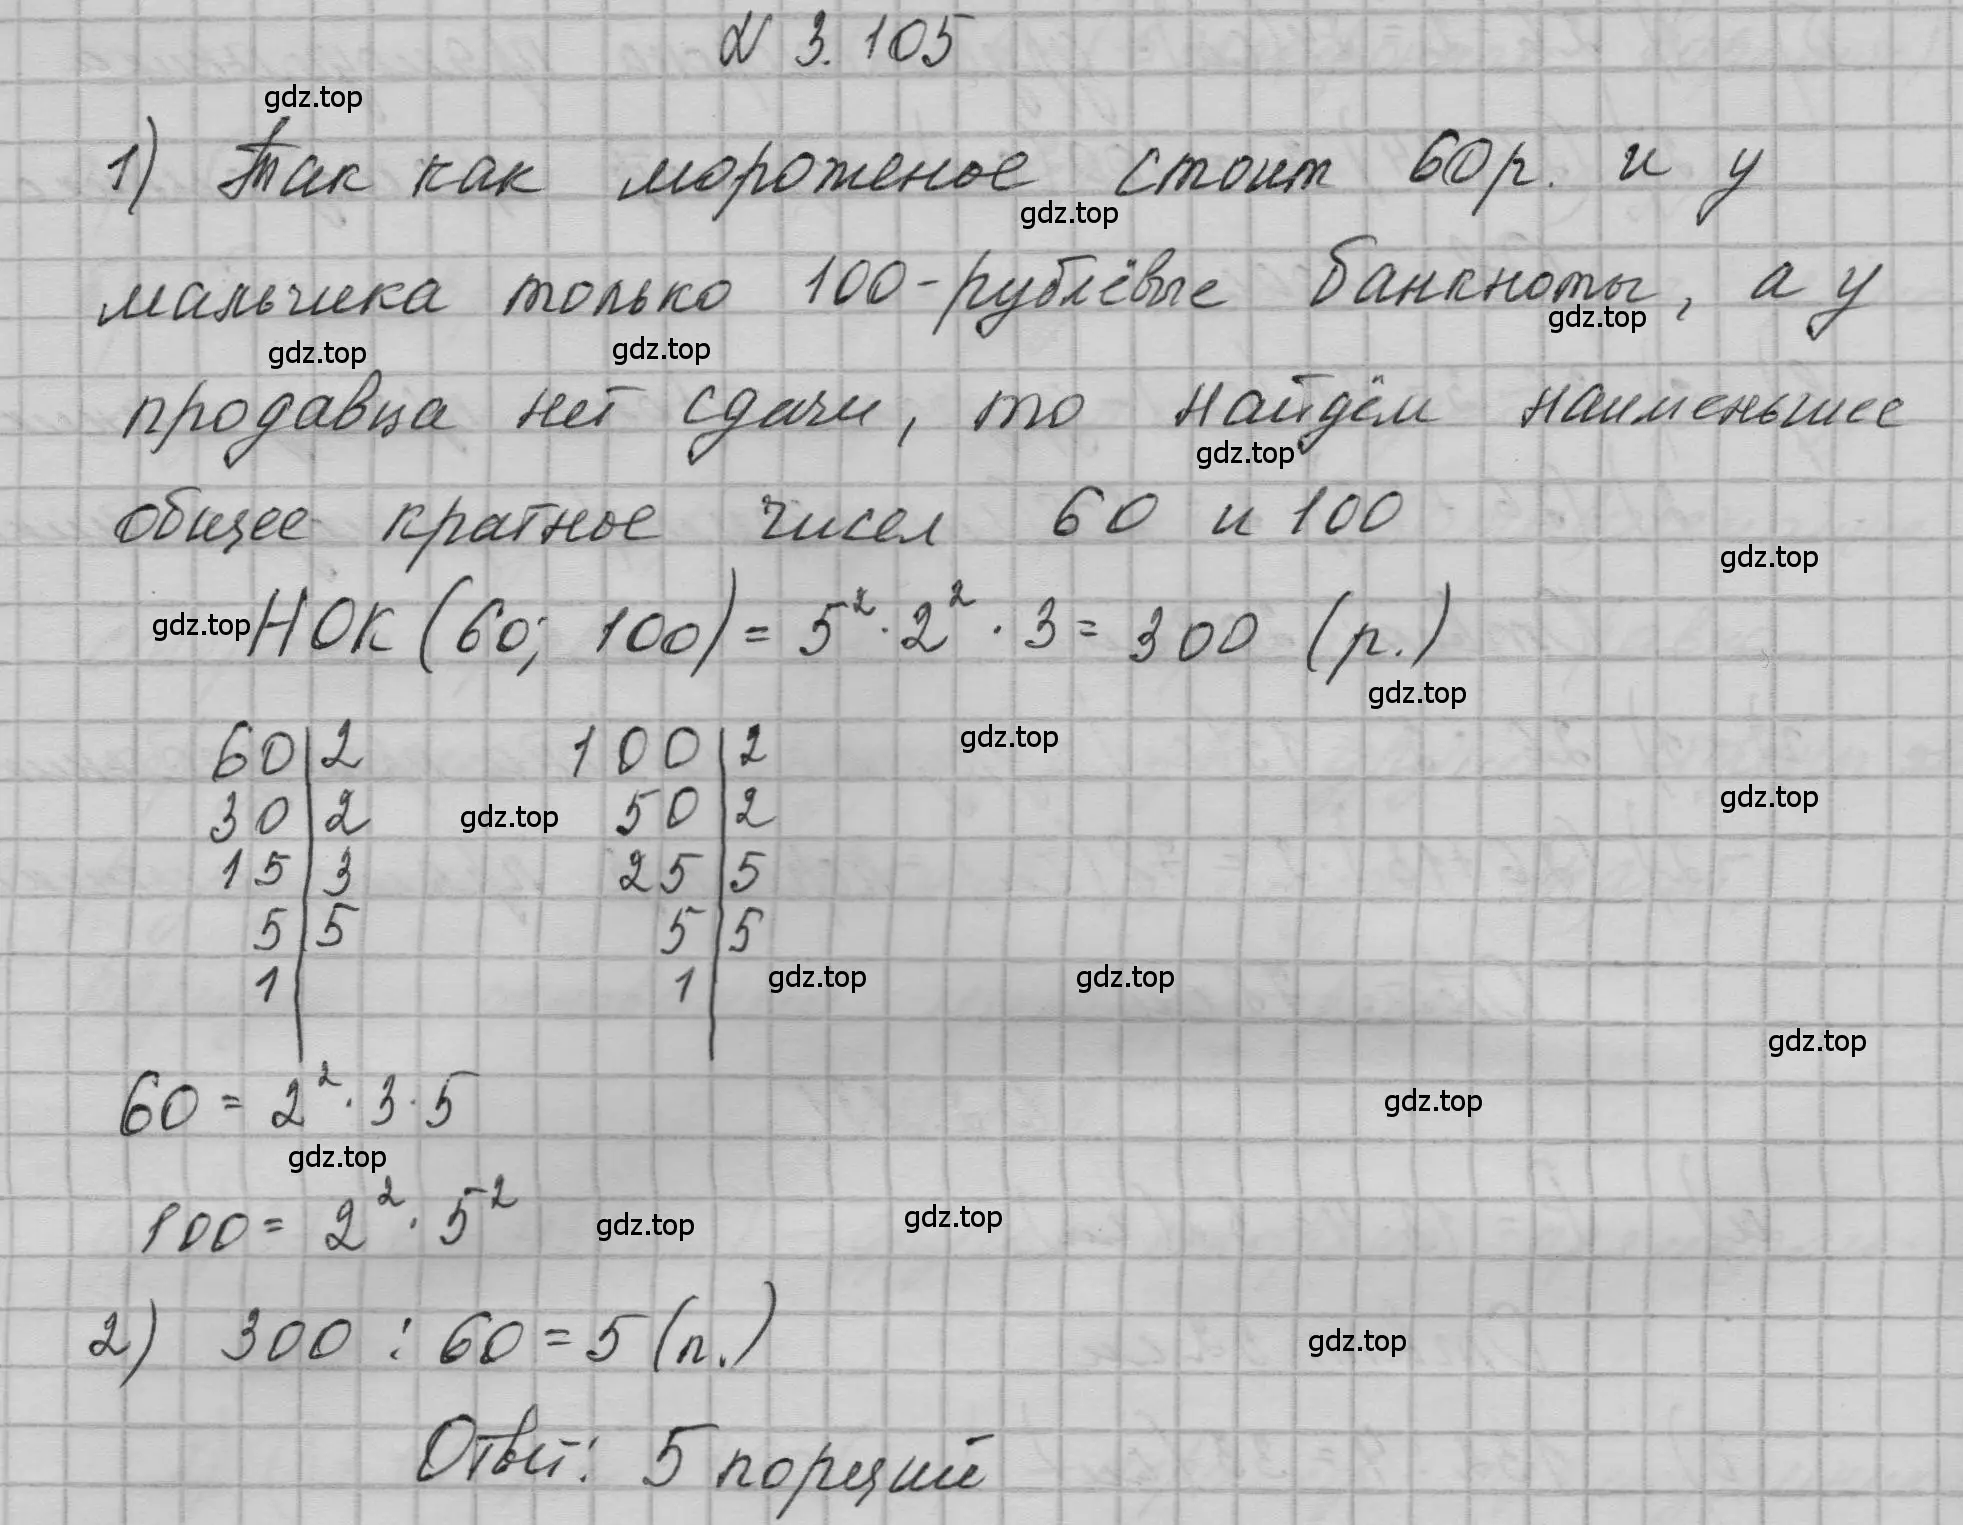 № 3.105
gdz.top
1) Так как мороженое стоит 60р. и у
gdz.top
мальчика только 100-рублёвые банкноты, а у
gdz.top
gdz.top gdz.top
продавца нет сдачи, то найдём наименьшее
gdz.top
общее кратное чисел 60 и 100
gdz.top
gdz.top НОК (60; 100) = 5² · 2² · 3 = 300 (р.)
gdz.top
60 | 2 100 | 2 gdz.top
30 | 2 gdz.top 50 | 2 gdz.top
15 | 3 25 | 5
5 | 5 5 | 5
1 | 1 | gdz.top gdz.top
gdz.top
60 = 2² · 3 · 5 gdz.top
gdz.top
100 = 2² · 5² gdz.top gdz.top
2) 300 : 60 = 5 (п.) gdz.top
Ответ: 5 порций